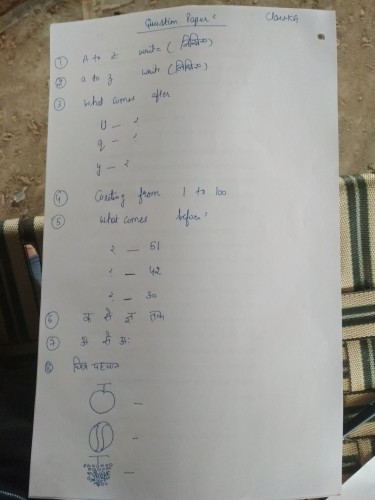 Question Paper:
Class-KA
① A to z write (लिखित)
② a to z write (लिखित)
③ what comes after
U — ?
q — ?
y — ?
④ Counting from 1 to 100
⑤ what comes before:
? — 51
? — 42
? — 30
⑥ क से ज्ञ तक
⑦ अ से अः
⑧ चित्र पहचान